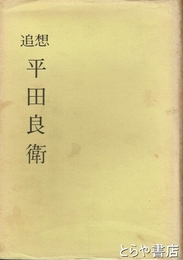 追想
平田良衛
とらや書店